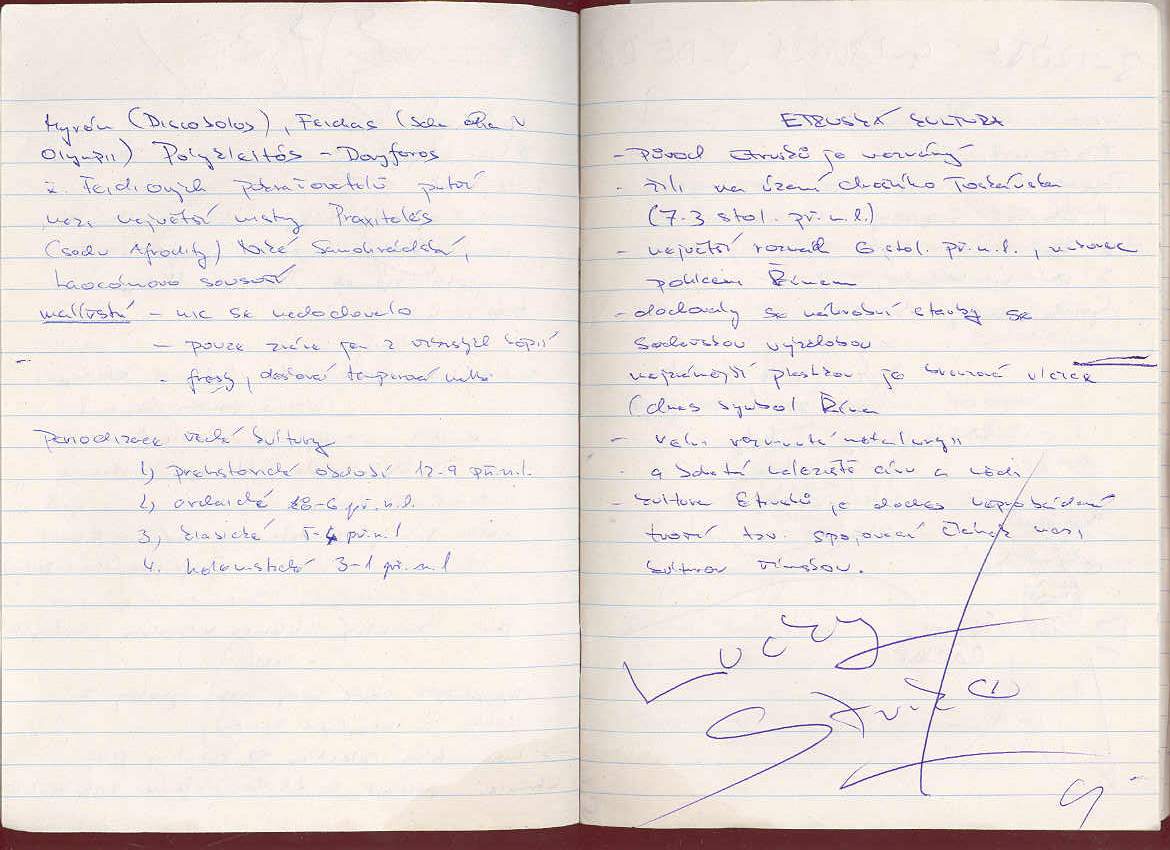 Myrón (Discobolos), Feidias (socha Dia v
Olympii) Polykleitós - Doryforos
z. Feidiových pokračovatelů patří
mezi největší mistry Praxitelés
(sochy Afrodity) Niké Samothrácká,
Laocónovo sousoší
malířství - nic se nedochovalo
- pouze známe jen z římských kopií
- fresky, desková temperová malba
Periodizace řecké kultury
1) prehistorické období 12-9 př.n.l.
2) archaické 8-6 př.n.l.
3) klasické 5-4 př.n.l
4. helenistické 3-1 př.n.l
ETRUSKÁ KULTURA
- původ Etrusků je neznámý
- žili na území dnešního Toskánska
(7-3 stol. př.n.l.)
- největší rozmach 6 stol. př.n.l.,
pohlceni Římem
- dochovaly se náhrobní stavby se
sochařskou výzdobou
nejznámější plastikou je bronzová vlčice
(dnes symbol Říma
- velmi metalurgii
- a bohatá naleziště cínu a mědi
- kultura Etrusků je dodnes neprobádaná
tvoří tzv. spojovací článek mezi
kulturou římskou.